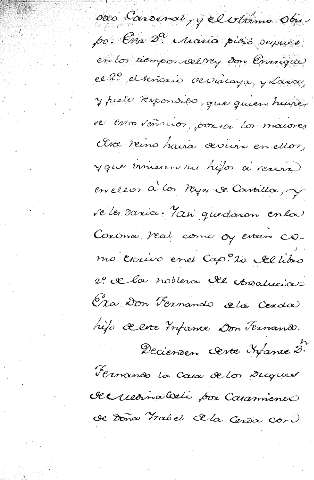 Cardenal, y el ultimo Obis-
po. Esta Dª. Maria pidio despues
en los tiempos del Rey Don Enrrique
el 2º el Señorio de Vizcaya, y Lara,
y fuele respondido, que quien huvie-
se estos señorios, por ser los maiores
del Reino havia de vivir en ellos,
y que imbiase su hijos a
en ellos à los Reys de Castilla, y
se les daria. Y asi quedaron en la
Corona Real como oy estan co-
mo escrivo en el Capº. 20 del libro
2º de la nobleza del Andalucia.
Era Don Fernando de la Cerda
hijo de este Infante Don Fernando.
Decienden de este Infante Dn
Fernando la Casa de los Duques
de Medina Celi por Casamiento
de Doña Ysabel de la Cerda con